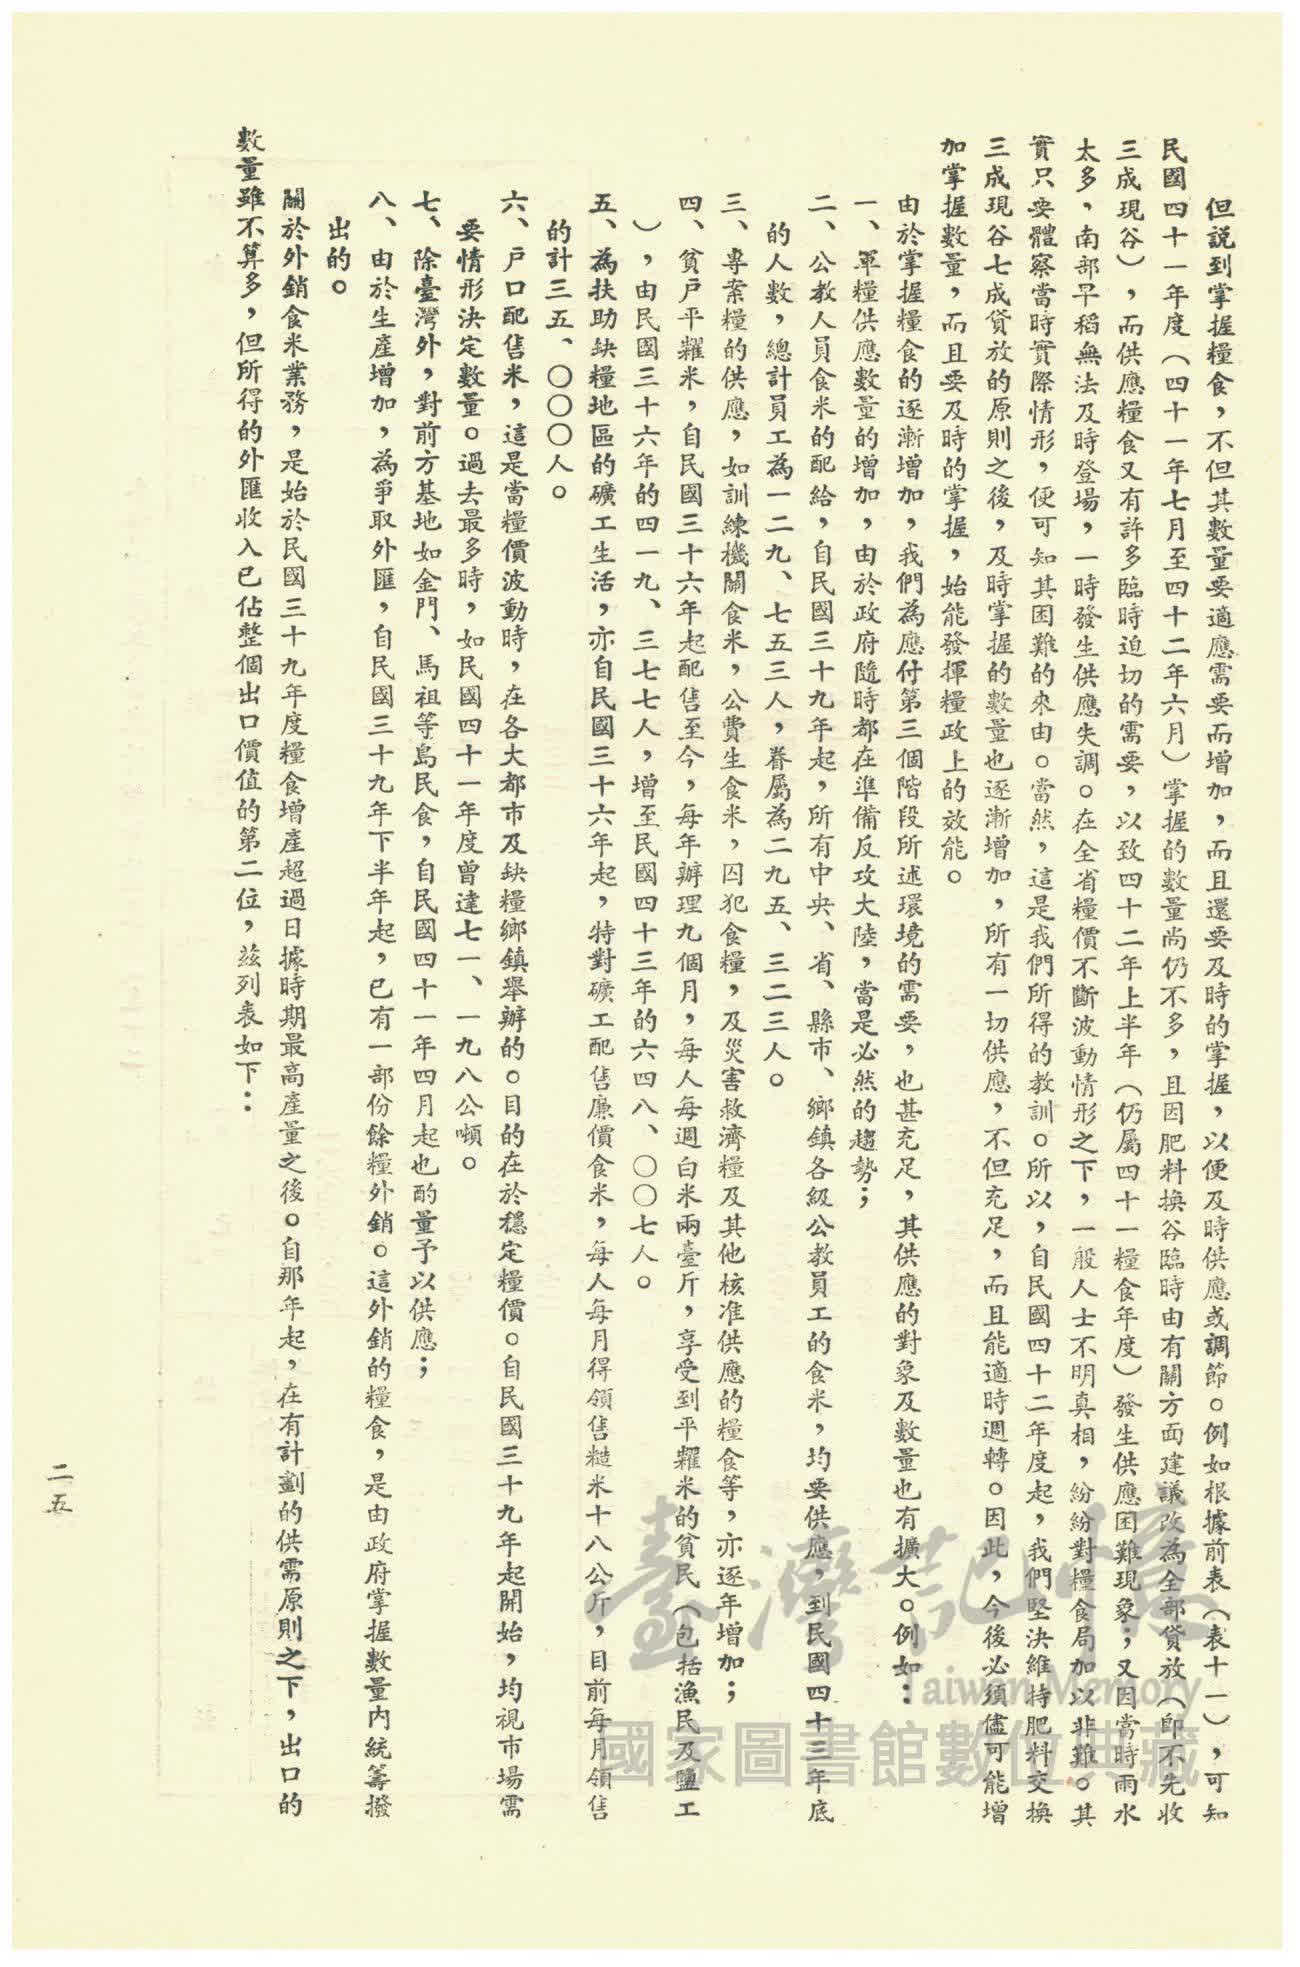 但說到掌握糧食，不但其數量要適應需要而增加，而且還要及時的掌握，以便及時供應或調節。例如根據前表（表十一），可知
民國四十一年度（四十一年七月至四十二年六月）掌握的數量尚仍不多，且因肥料換谷臨時由有關方面建議改為全部貸放（即不先收
三成現谷），而供應糧食又有許多臨時迫切的需要，以致四十二年上半年（仍屬四十一糧食年度）發生供應困難現象；又因當時雨水
太多，南部早稻無法及時登場，一時發生供應失調。在全省糧價不斷波動情形之下，一般人士不明真相，紛紛對糧食局加以非難。其
實只要體察當時實際情形，便可知其困難的來由。當然，這是我們所得的教訓。所以，自民國四十二年度起，我們堅決維持肥料交換
三成現谷七成貸放的原則之後，及時掌握的數量也逐漸增加，所有一切供應，不但充足，而且能適時週轉。因此，今後必須儘可能增
加掌握數量，而且要及時的掌握，始能發揮糧政上的效能。
由於掌握糧食的逐漸增加，我們為應付第三個階段所述環境的需要，也甚充足，其供應的對象及數量也有擴大。例如：
一、軍糧供應數量的增加，由於政府隨時都在準備反攻大陸，當是必然的趨勢；
二、公教人員食米的配給，自民國三十九年起，所有中央、省、縣市、鄉鎮各級公教員工的食米，均要供應，到民國四十三年底
的人數，總計員工為一二九、七五三人，眷屬為二九五、三二三人。
三、專案糧的供應，如訓練機關食米，公費生食米，囚犯食糧，及災害救濟糧及其他核准供應的糧食等，亦逐年增加；
四、貧戶平糶米，自民國三十六年起配售至今，每年辦理九個月，每人每週白米兩臺斤，享受到平糶米的貧民（包括漁民及鹽工
），由民國三十六年的四一九、三七七人，增至民國四十三年的六四八、〇〇七人。
五、為扶助缺糧地區的礦工生活，亦自民國三十六年起，特對礦工配售廉價食米，每人每月得領售糙米十八公斤，目前每月領售
的計三五、〇〇〇人。
六、戶口配售米，這是當糧價波動時，在各大都市及缺糧鄉鎮舉辦的。目的在於穩定糧價。自民國三十九年起開始，均視市場需
要情形決定數量。過去最多時，如民國四十一年度曾達七一、一九八公噸。
七、除臺灣外，對前方基地如金門、馬祖等島民食，自民國四十一年四月起也酌量予以供應；
八、由於生產增加，為爭取外匯，自民國三十九年下半年起，已有一部份餘糧外銷。這外銷的糧食，是由政府掌握數量內統籌撥
出的。
關於外銷食米業務，是始於民國三十九年度糧食增產超過日據時期最高產量之後。自那年起，在有計劃的供需原則之下，出口的
數量雖不算多，但所得的外匯收入已佔整個出口價值的第二位，茲列表如下：
二五
臺灣記憶
Taiwan Memory
國家圖書館數位典藏